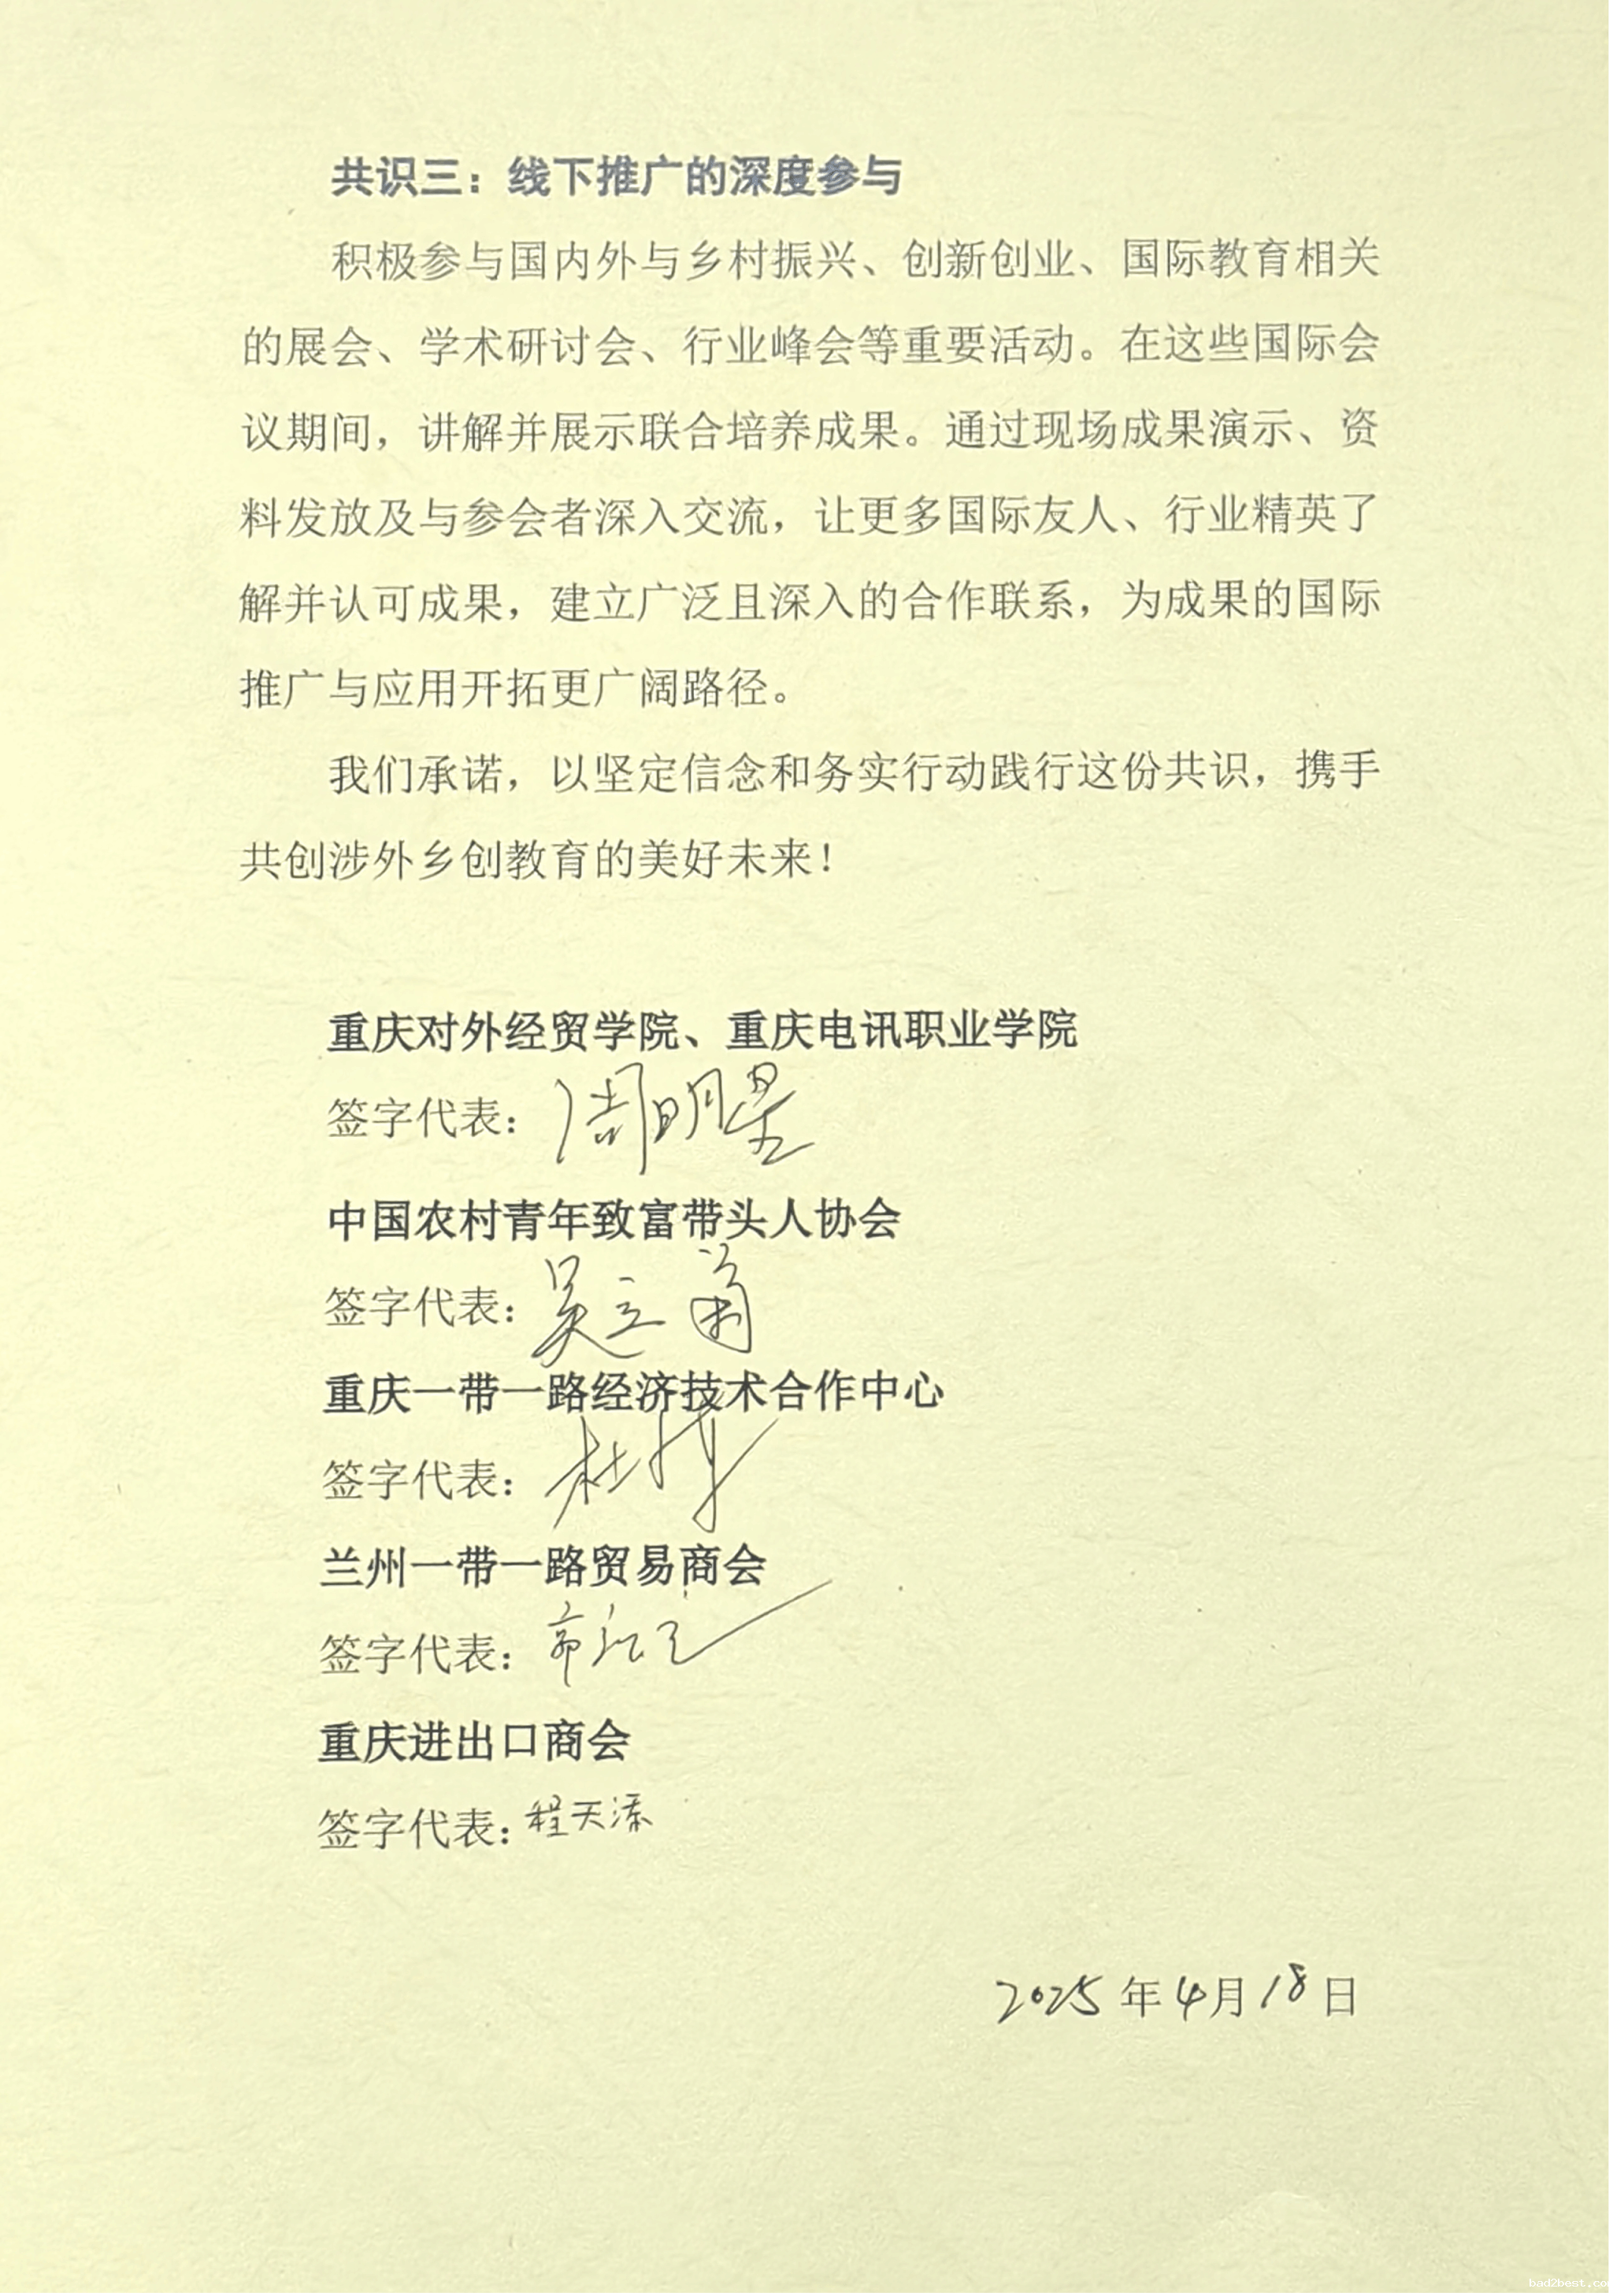 共识三：线下推广的深度参与
积极参与国内外与乡村振兴、创新创业、国际教育相关
的展会、学术研讨会、行业峰会等重要活动。在这些国际会
议期间，讲解并展示联合培养成果。通过现场成果演示、资
料发放及与参会者深入交流，让更多国际友人、行业精英了
解并认可成果，建立广泛且深入的合作联系，为成果的国际
推广与应用开拓更广阔路径。
我们承诺，以坚定信念和务实行动践行这份共识，携手
共创涉外乡创教育的美好未来！
重庆对外经贸学院、重庆电讯职业学院
签字代表：周明星
中国农村青年致富带头人协会
签字代表：吴立
重庆一带一路经济技术合作中心
签字代表：杜
兰州一带一路贸易商会
签字代表：
重庆进出口商会
签字代表：程天添
2025年4月18日
bad2best.co